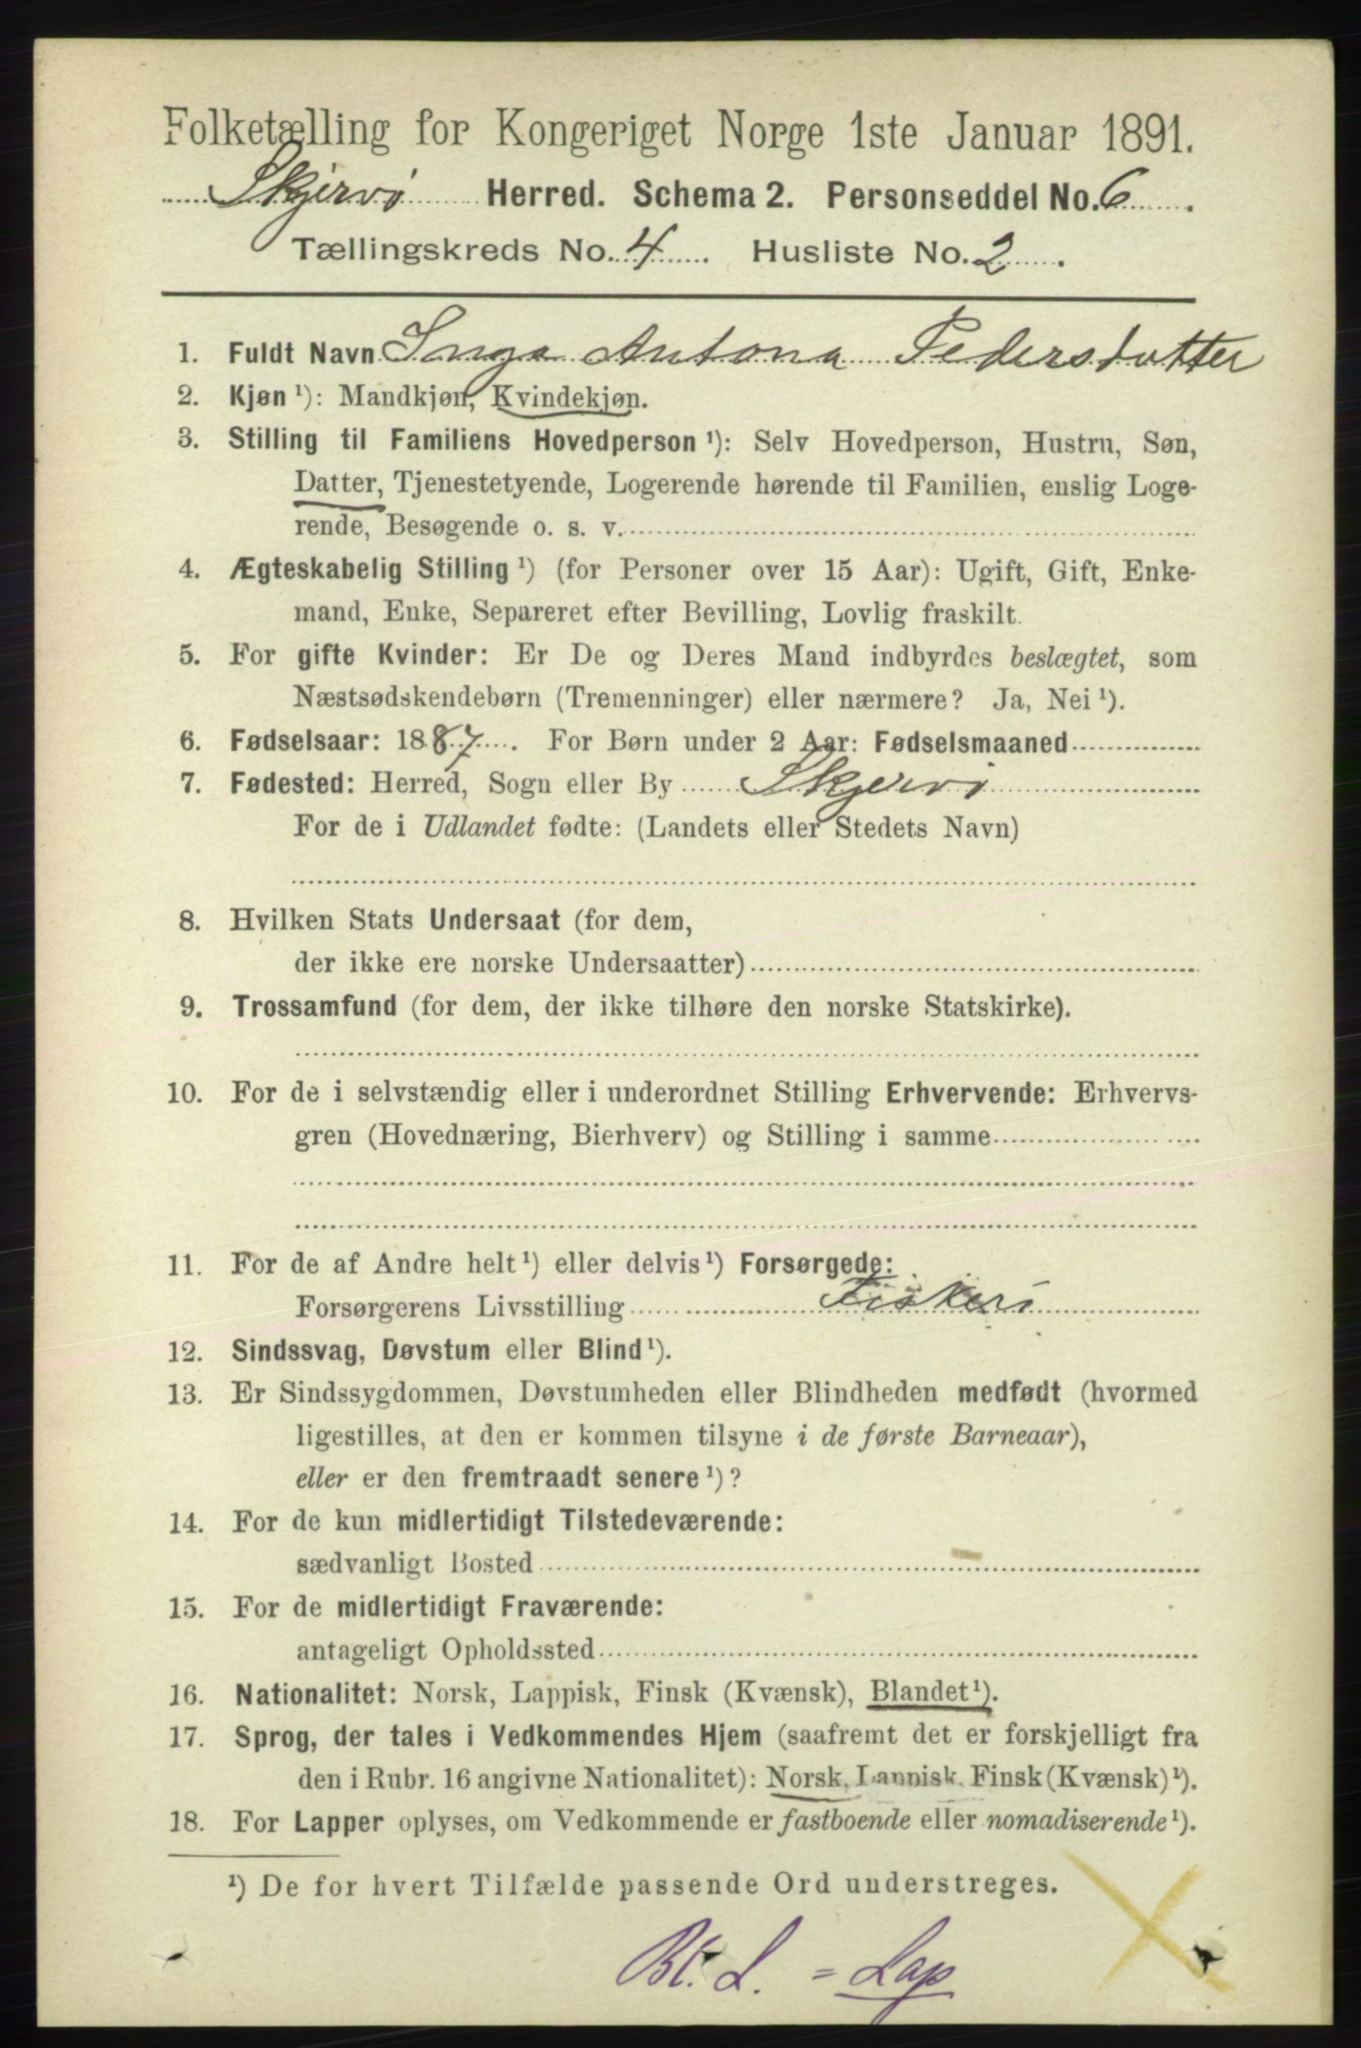 Folketælling for Kongeriget Norge 1ste Januar 1891.
Skjervö Herred. Schema 2. Personseddel No. 6.
Tællingskreds No. 4. Husliste No. 2.
1. Fuldt Navn Inga Antona Pedersdatter
2. Kjøn ¹): Mandkjøn, Kvindekjøn.
3. Stilling til Familiens Hovedperson ¹): Selv Hovedperson, Hustru, Søn,
Datter, Tjenestetyende, Logerende hørende til Familien, enslig Loge-
rende, Besøgende o. s. v.
4. Ægteskabelig Stilling ¹) (for Personer over 15 Aar): Ugift, Gift, Enke-
mand, Enke, Separeret efter Bevilling, Lovlig fraskilt.
5. For gifte Kvinder: Er De og Deres Mand indbyrdes beslægtet, som
Næstsødskendebørn (Tremenninger) eller nærmere? Ja, Nei ¹).
6. Fødselsaar: 1887. For Børn under 2 Aar: Fødselsmaaned
7. Fødested: Herred, Sogn eller By Skjervö
For de i Udlandet fødte: (Landets eller Stedets Navn)
8. Hvilken Stats Undersaat (for dem,
der ikke ere norske Undersaatter)
9. Trossamfund (for dem, der ikke tilhøre den norske Statskirke).
10. For de i selvstændig eller i underordnet Stilling Erhvervende: Erhvervs-
gren (Hovednæring, Bierhverv) og Stilling i samme
11. For de af Andre helt ¹) eller delvis ¹) Forsørgede:
Forsørgerens Livsstilling Fiskeri
12. Sindssvag, Døvstum eller Blind ¹).
13. Er Sindssygdommen, Døvstumheden eller Blindheden medfødt (hvormed
ligestilles, at den er kommen tilsyne i de første Barneaar),
eller er den fremtraadt senere ¹)?
14. For de kun midlertidigt Tilstedeværende:
sædvanligt Bosted
15. For de midlertidigt Fraværende:
antageligt Opholdssted
16. Nationalitet: Norsk, Lappisk, Finsk (Kvænsk), Blandet ¹).
17. Sprog, der tales i Vedkommendes Hjem (saafremt det er forskjelligt fra
den i Rubr. 16 angivne Nationalitet): Norsk, Lappisk, Finsk (Kvænsk) ¹).
18. For Lapper oplyses, om Vedkommende er fastboende eller nomadiserende ¹).
¹) De for hvert Tilfælde passende Ord understreges.
Bl. L. = Lap